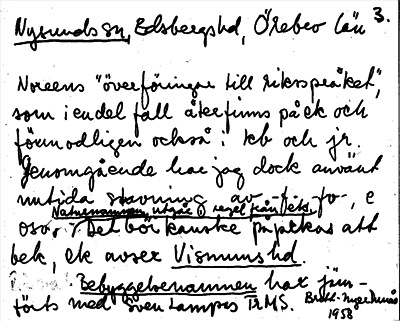 3.
Nysunds sn, Edsbergs hd, Örebro län
Noreens "överföringar till riksspråket",
som i en del fall återfinns på ek och
förmodligen också i kb och jr.
Genomgående har jag dock använt
nutida stavning av -f-, -fv-, e
Naturnamnen utgår i regel från jfs.
osv. Det bör kanske påpekas att
bek, ek avser Visnums hd.
Bebyggelsenamnen har jäm-
förts med Sven Lampas
1958